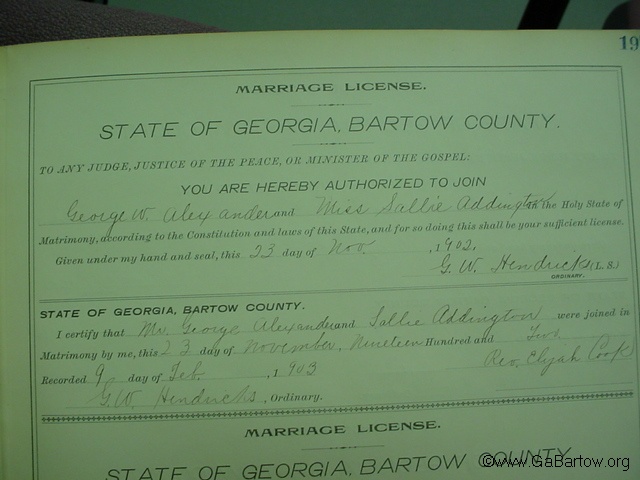 19
MARRIAGE LICENSE.
STATE OF GEORGIA, BARTOW COUNTY.
TO ANY JUDGE, JUSTICE OF THE PEACE, OR MINISTER OF THE GOSPEL:
YOU ARE HEREBY AUTHORIZED TO JOIN
George W. Alexander and Miss Sallie Addington in the Holy State of
Matrimony, according to the Constitution and laws of this State, and for so doing this shall be your sufficient license.
Given under my hand and seal, this 23 day of Nov. , 1902.
G. W. Hendricks (L. S.)
ORDINARY.
STATE OF GEORGIA, BARTOW COUNTY.
I certify that Mr. George Alexander and Sallie Addington were joined in
Matrimony by me, this 23 day of November, Nineteen Hundred and Two
Rev. Elijah Cook
Recorded 9 day of Feb. , 1903
G. W. Hendricks, Ordinary.
MARRIAGE LICENSE.
STATE OF GEORGIA, BARTOW COUNTY
©www.GaBartow.org